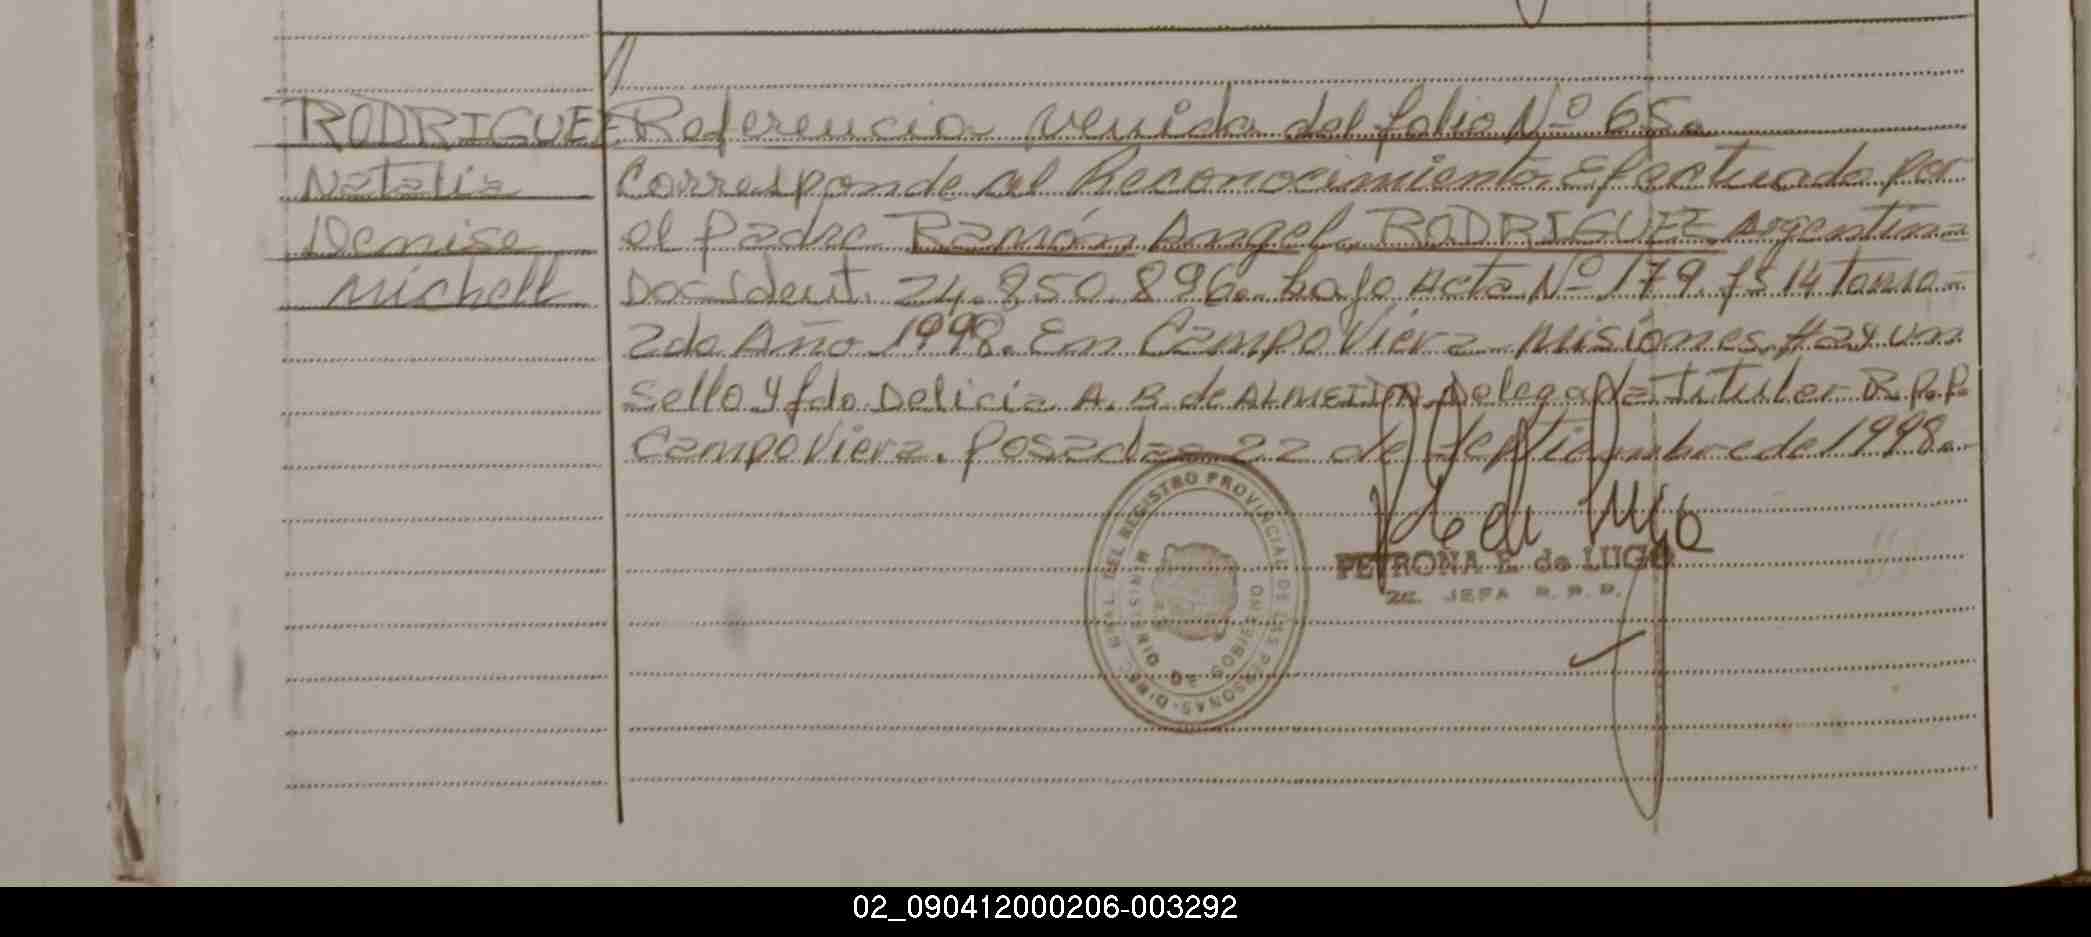 RODRIGUEZ Referencia venida del folio Nº 65.
Natalia Corresponde al Reconocimiento Efectuado por
Denise el Padre Ramón Angel RODRIGUEZ Argentina
Michell Doc Ident. 24.850.896. bajo Acta Nº 179. fs 14 Tomo
2do Año 1998. En Campo Viera Misiones. Hay un
Sello y fdo Delicia A. B. de ALMEIDA Delegada Titular R.P.P.
Campo Viera. Posadas 22 de Septiembre de 1998.
DIREC. GRAL. DEL REGISTRO PROVINCIAL DE LAS PERSONAS
MINISTERIO DE GOBIERNO
PETRONA E. de LUGO
JEFA R. P. P.
02_090412000206-003292